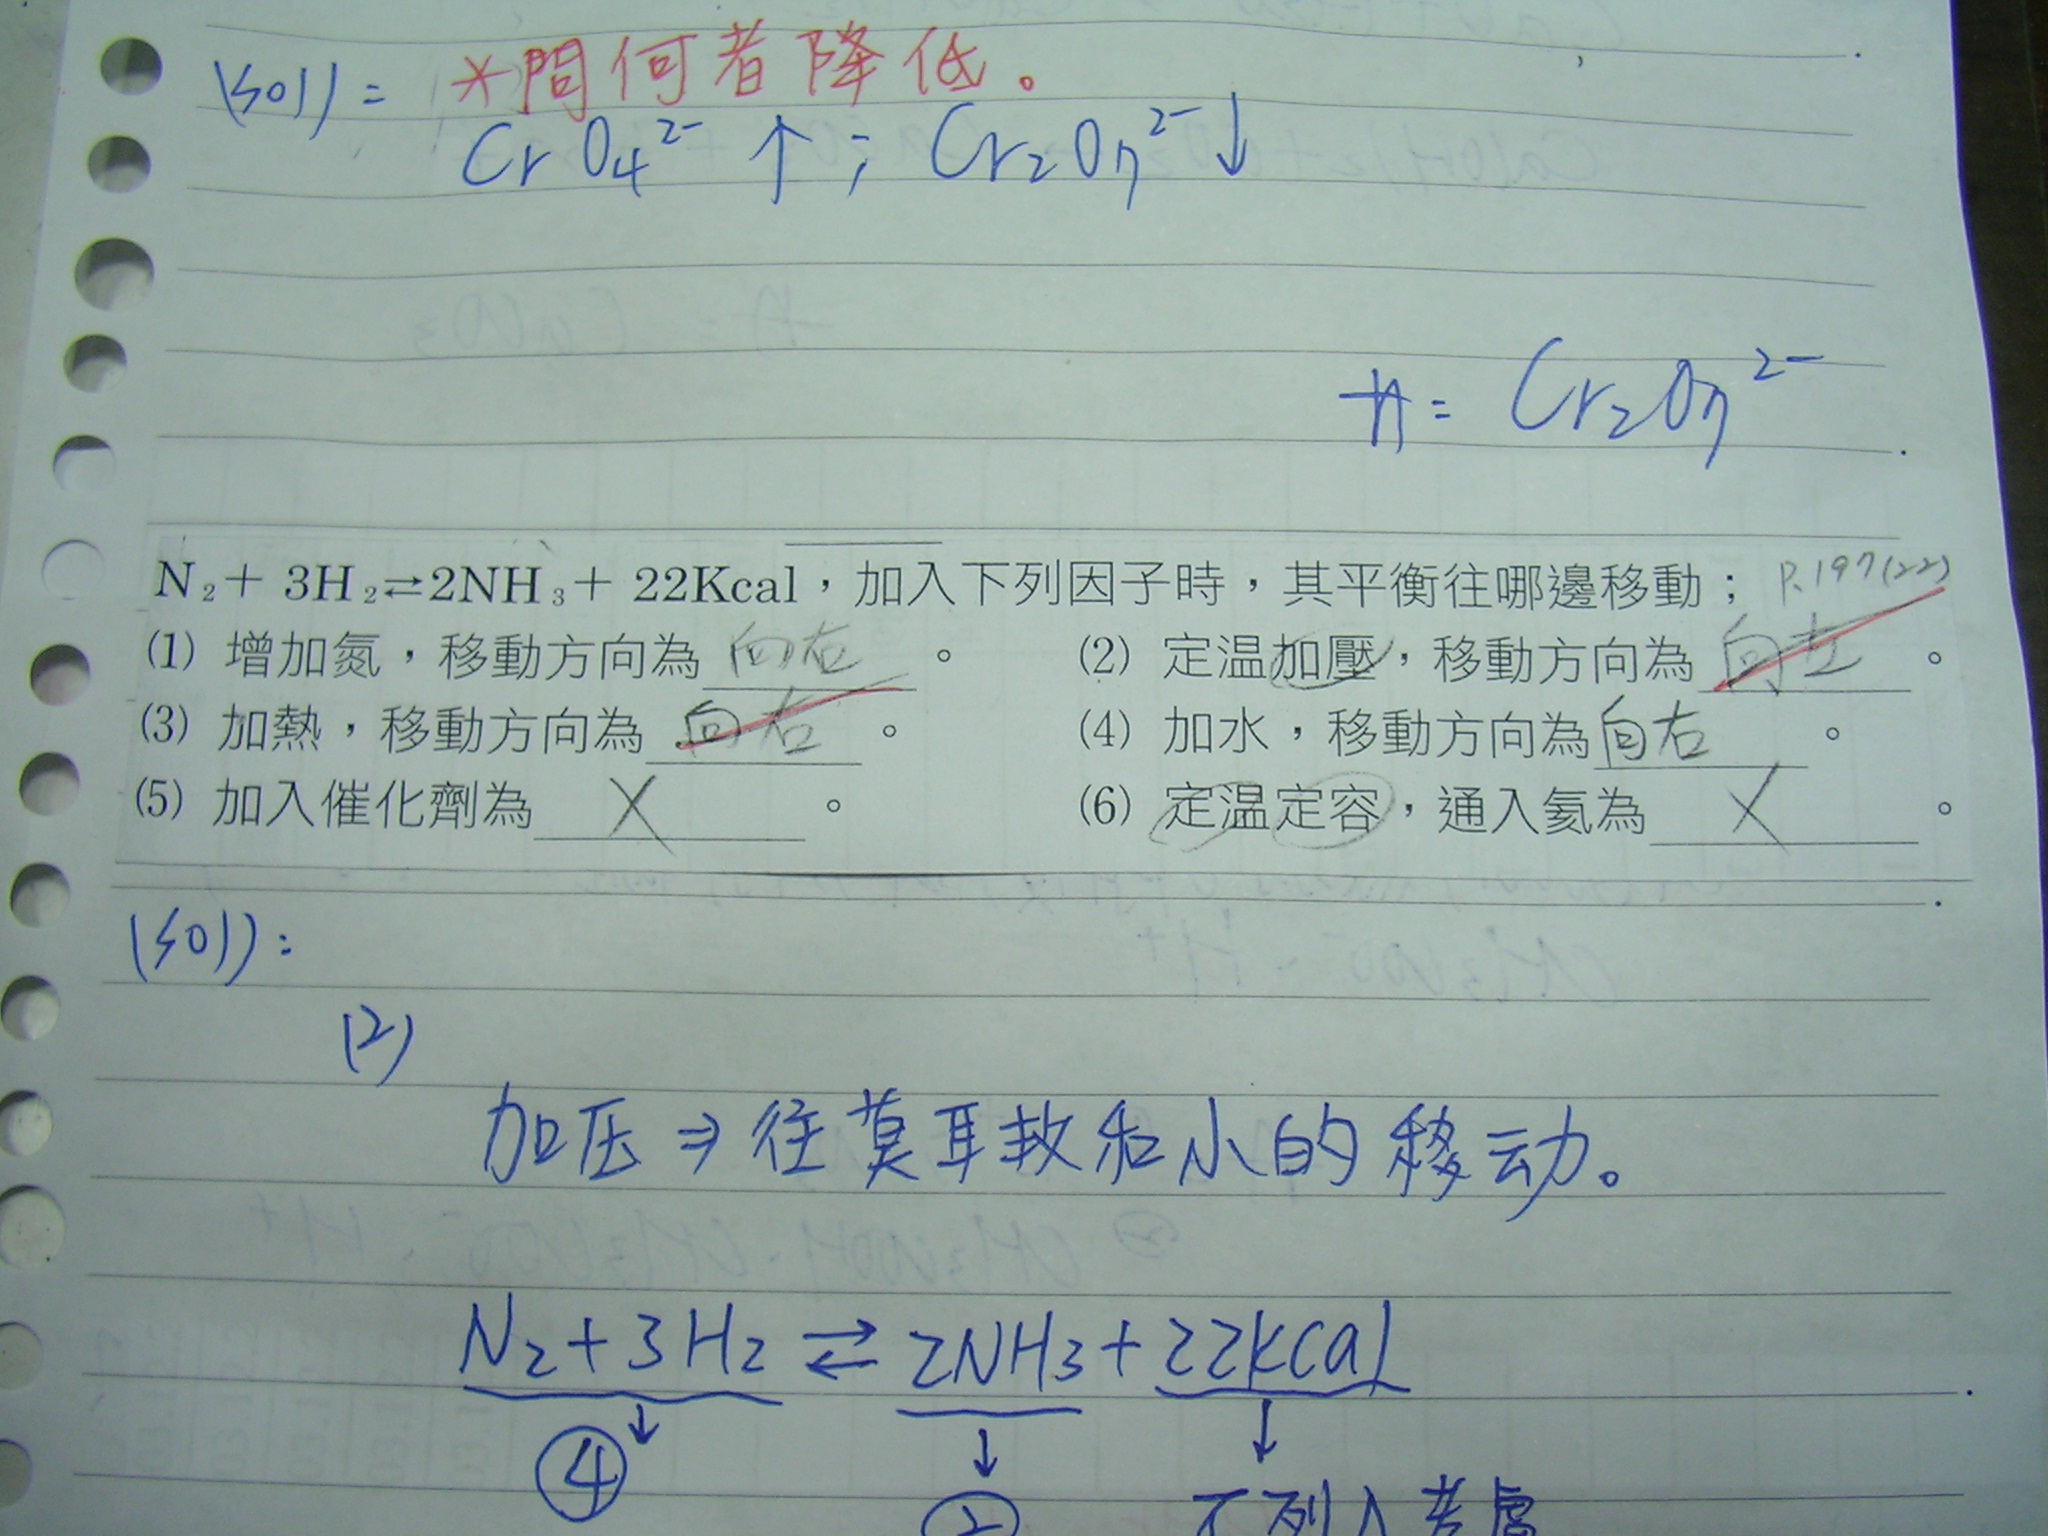 (sol)= *問何者降低。
CrO4^2- ↑ ; Cr2O7^2- ↓
A= Cr2O7^2-
N2 + 3H2⇄2NH3 + 22Kcal，加入下列因子時，其平衡往哪邊移動； P.197(22)
(1) 增加氮，移動方向為 向右 。 (2) 定温加壓，移動方向為 向左 。
(3) 加熱，移動方向為 向右 。 (4) 加水，移動方向為 向右 。
(5) 加入催化劑為 X 。 (6) 定温定容，通入氦為 X 。
(sol):
(2)
加压⇒往莫耳數和小的移动。
N2+3H2⇄2NH3+22kcal
↓ ↓ ↓
④ ② 不列入考慮